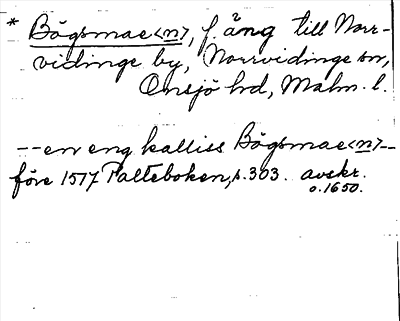 * Bögsmae<n>, f. äng till Norr-
vidinge by, Norrvidinge sn,
Onsjö hd, Malm. l.
--en eng kalliss Bögsmae<n>--
före 1517 Palteboken, s. 303. avskr.
o. 1650.